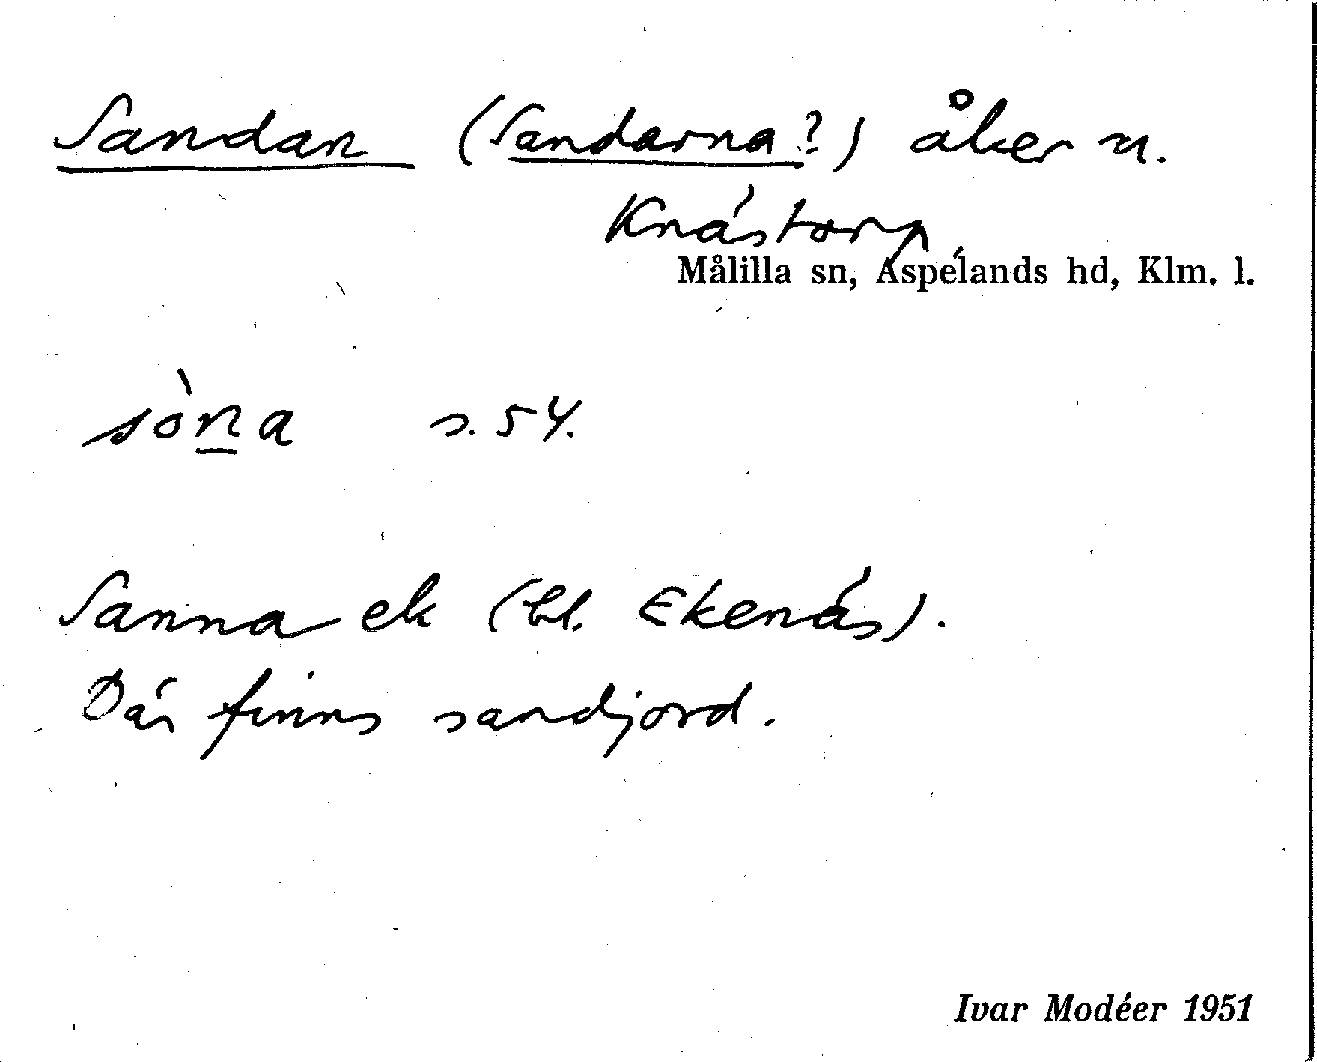 Sandan (Sandarna?) åker u.
Knästorp
Målilla sn, Aspelands hd, Klm. l.
sòna s. 54.
Sanna ek (bl. Ekenäs).
Där finns sandjord.
Ivar Modéer 1951